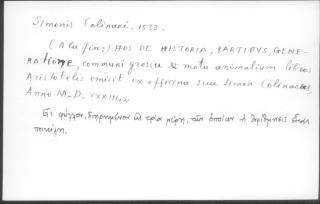 Simonis Colinaei. 1533.
(A la fin:) HOS DE HISTORIA, PARTIBVS, GENE-
RATIONE, communi gressu & motu animalium libros
Aristotelis emisit ex officina sua Simon Colinaeus,
Anno M.D. XXXIII,»
Εἰς φύλλον, διῃρημένον εἰς τρία μέρη, τῶν ὁποίων ἡ ἀρίθμησις εἶναι
ποικίλη.